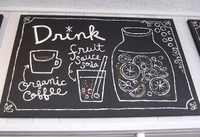 Drink
fruit
sauce
soda
organic
coffee